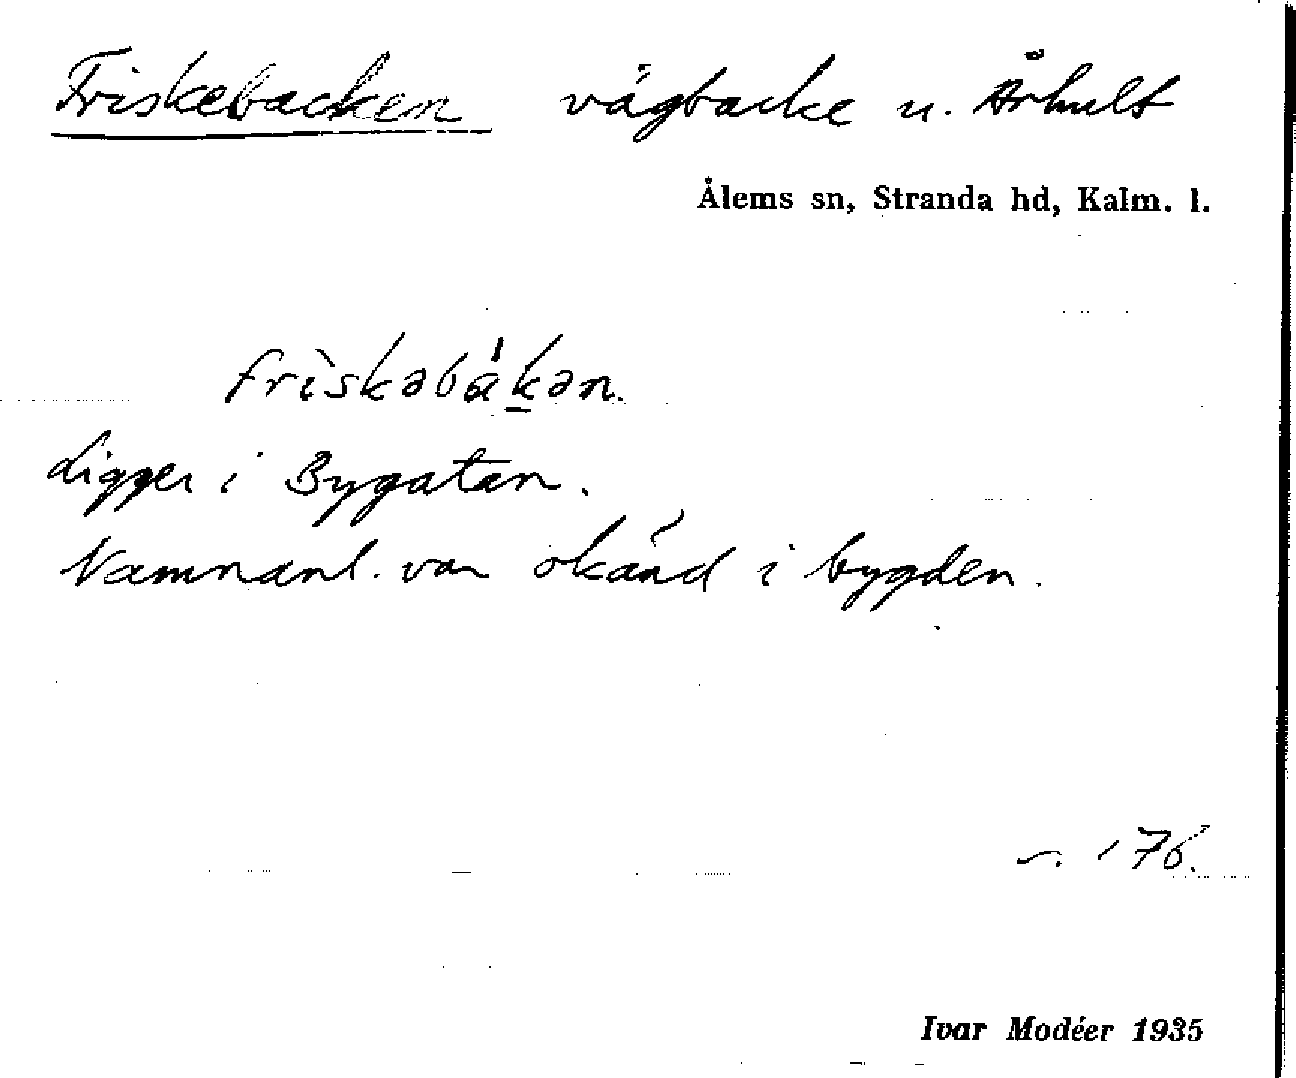 Friskebacken vägbacke u. Århult
Ålems sn, Stranda hd, Kalm. l.
frìskəbák̠ən.
Ligger i Bygatan.
Namnanl. var okänd i bygden.
176.
Ivar Modéer 1935